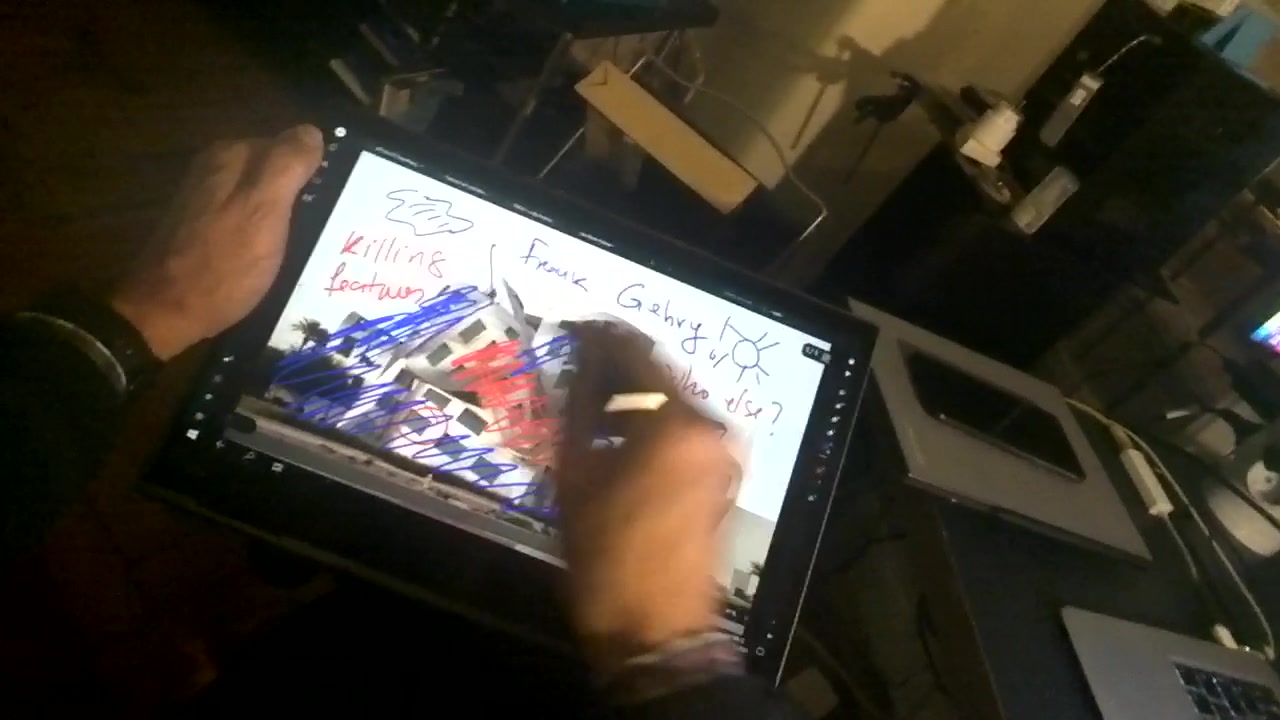 Killing
features
Frank
Gehry!
who else?